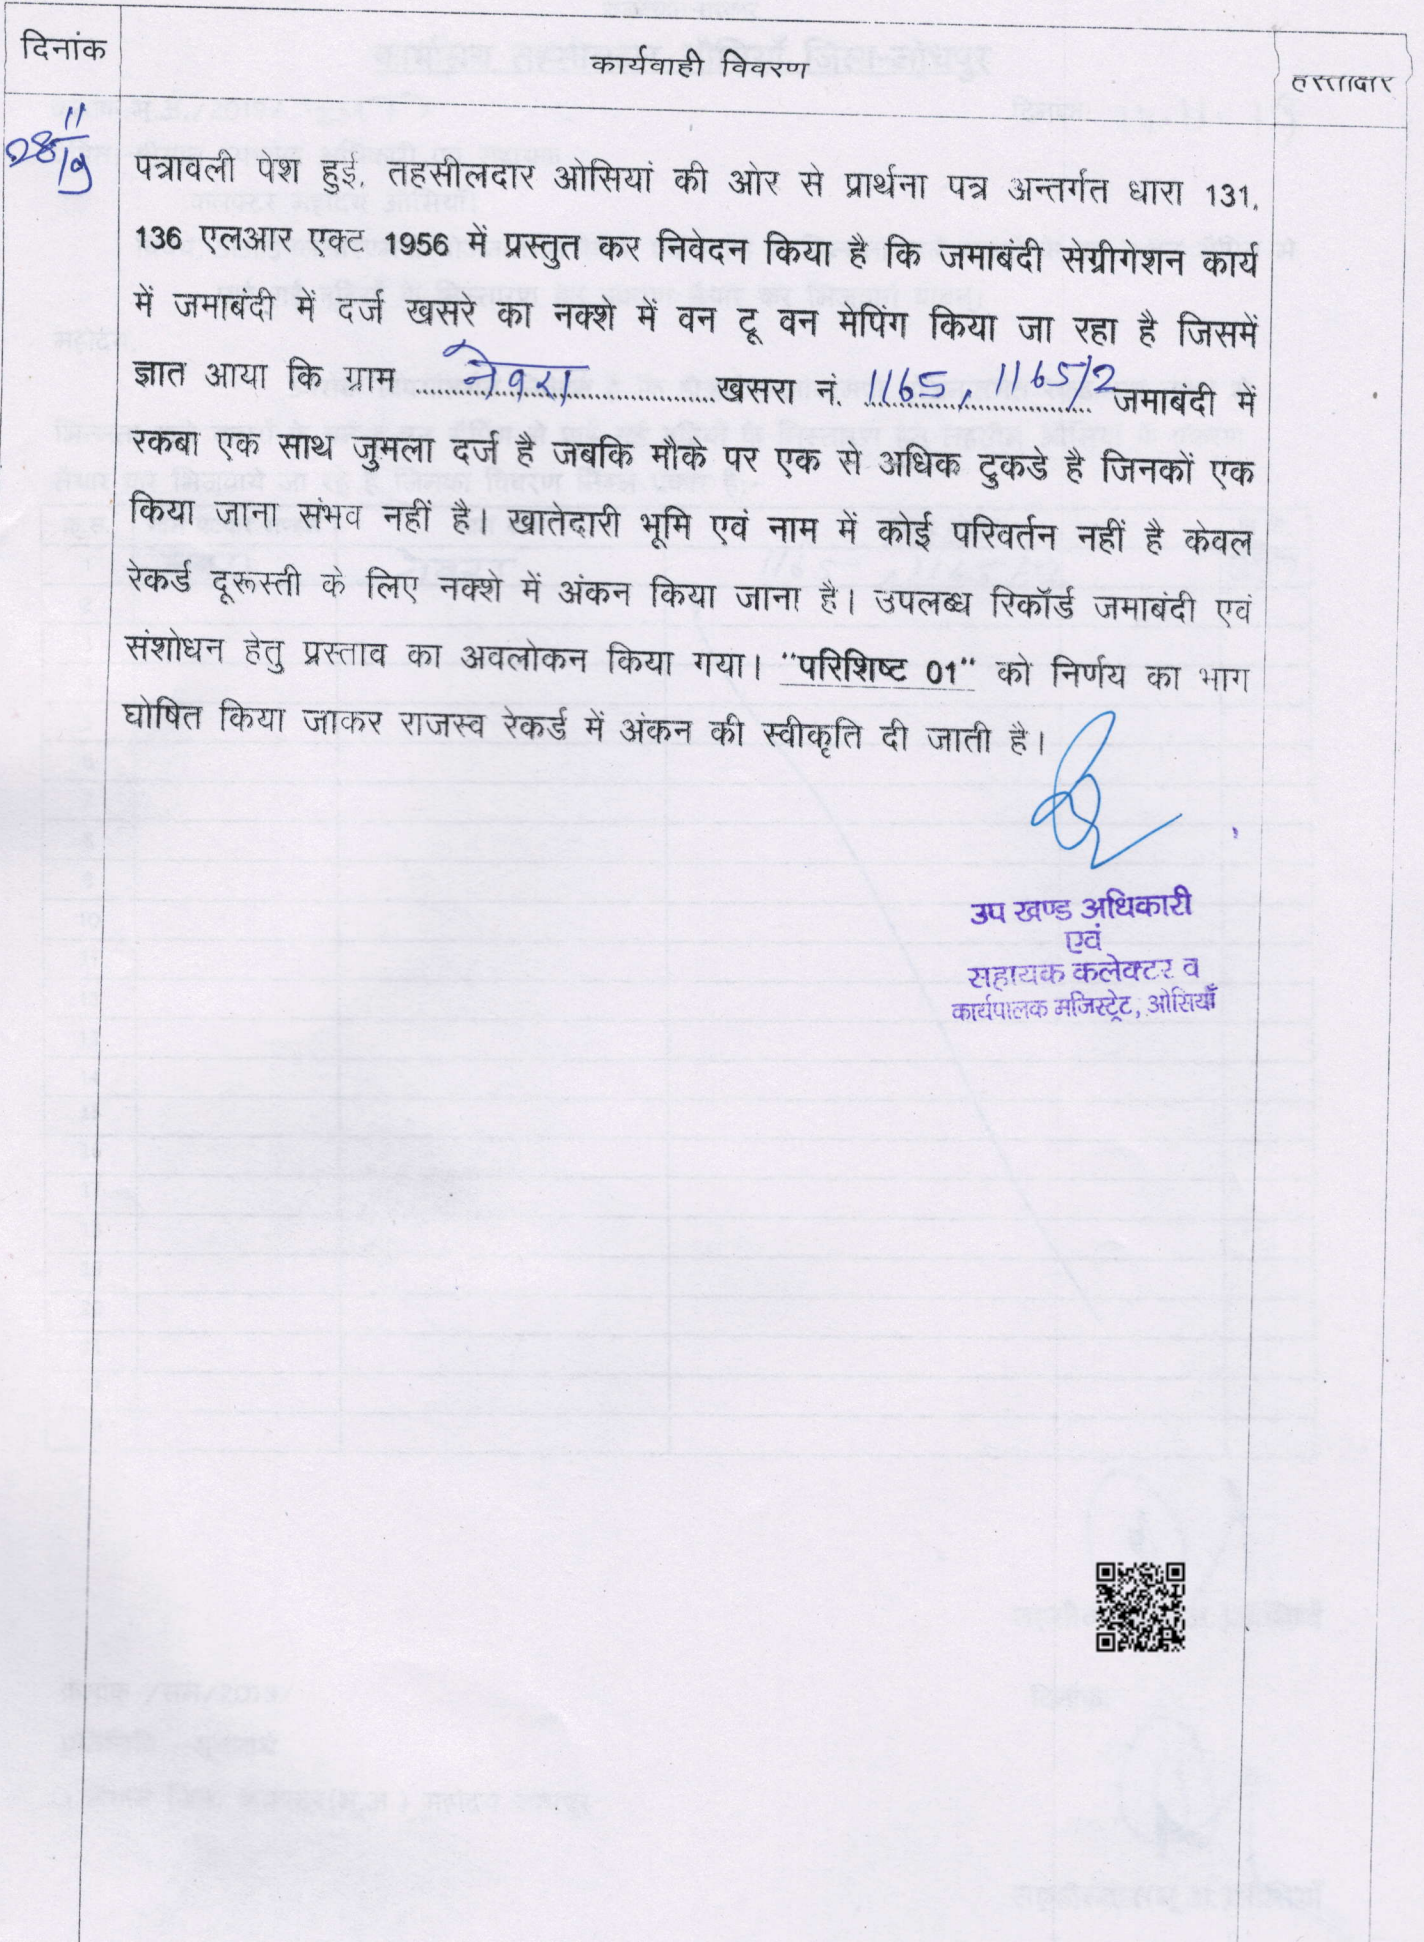 दिनांक
कार्यवाही विवरण
28/11/19
पत्रावली पेश हुई, तहसीलदार ओसियां की ओर से प्रार्थना पत्र अन्तर्गत धारा 131,
136 एलआर एक्ट 1956 में प्रस्तुत कर निवेदन किया है कि जमाबंदी सेग्रीगेशन कार्य
में जमाबंदी में दर्ज खसरे का नक्शे में वन टू वन मेपिंग किया जा रहा है जिसमें
ज्ञात आया कि ग्राम नेवरा खसरा नं. 1165, 1165/2 जमाबंदी में
रकबा एक साथ जुमला दर्ज है जबकि मौके पर एक से अधिक टुकडे है जिनकों एक
किया जाना संभव नहीं है। खातेदारी भूमि एवं नाम में कोई परिवर्तन नहीं है केवल
रेकर्ड दूरूस्ती के लिए नक्शे में अंकन किया जाना है। उपलब्ध रिकॉर्ड जमाबंदी एवं
संशोधन हेतु प्रस्ताव का अवलोकन किया गया। "परिशिष्ट 01" को निर्णय का भाग
घोषित किया जाकर राजस्व रेकर्ड में अंकन की स्वीकृति दी जाती है।
उप खण्ड अधिकारी
एवं
सहायक कलेक्टर व
कार्यपालक मजिस्ट्रेट, ओसियाँ